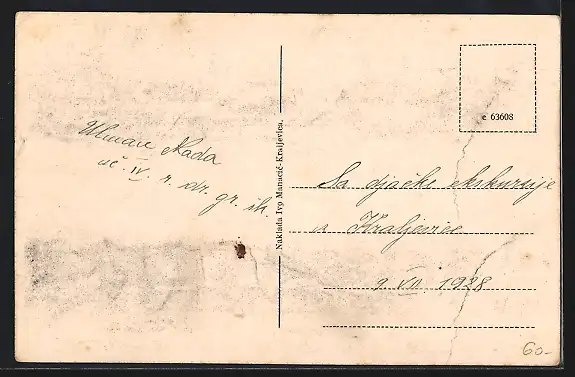 Nada
uč. IV. r. dr. gr. šk.
Naklada Ivo Manacić-Kraljevica.
c 63608
Sa djačke ekskurzije
u Kraljevice
2. VII 1928
60-